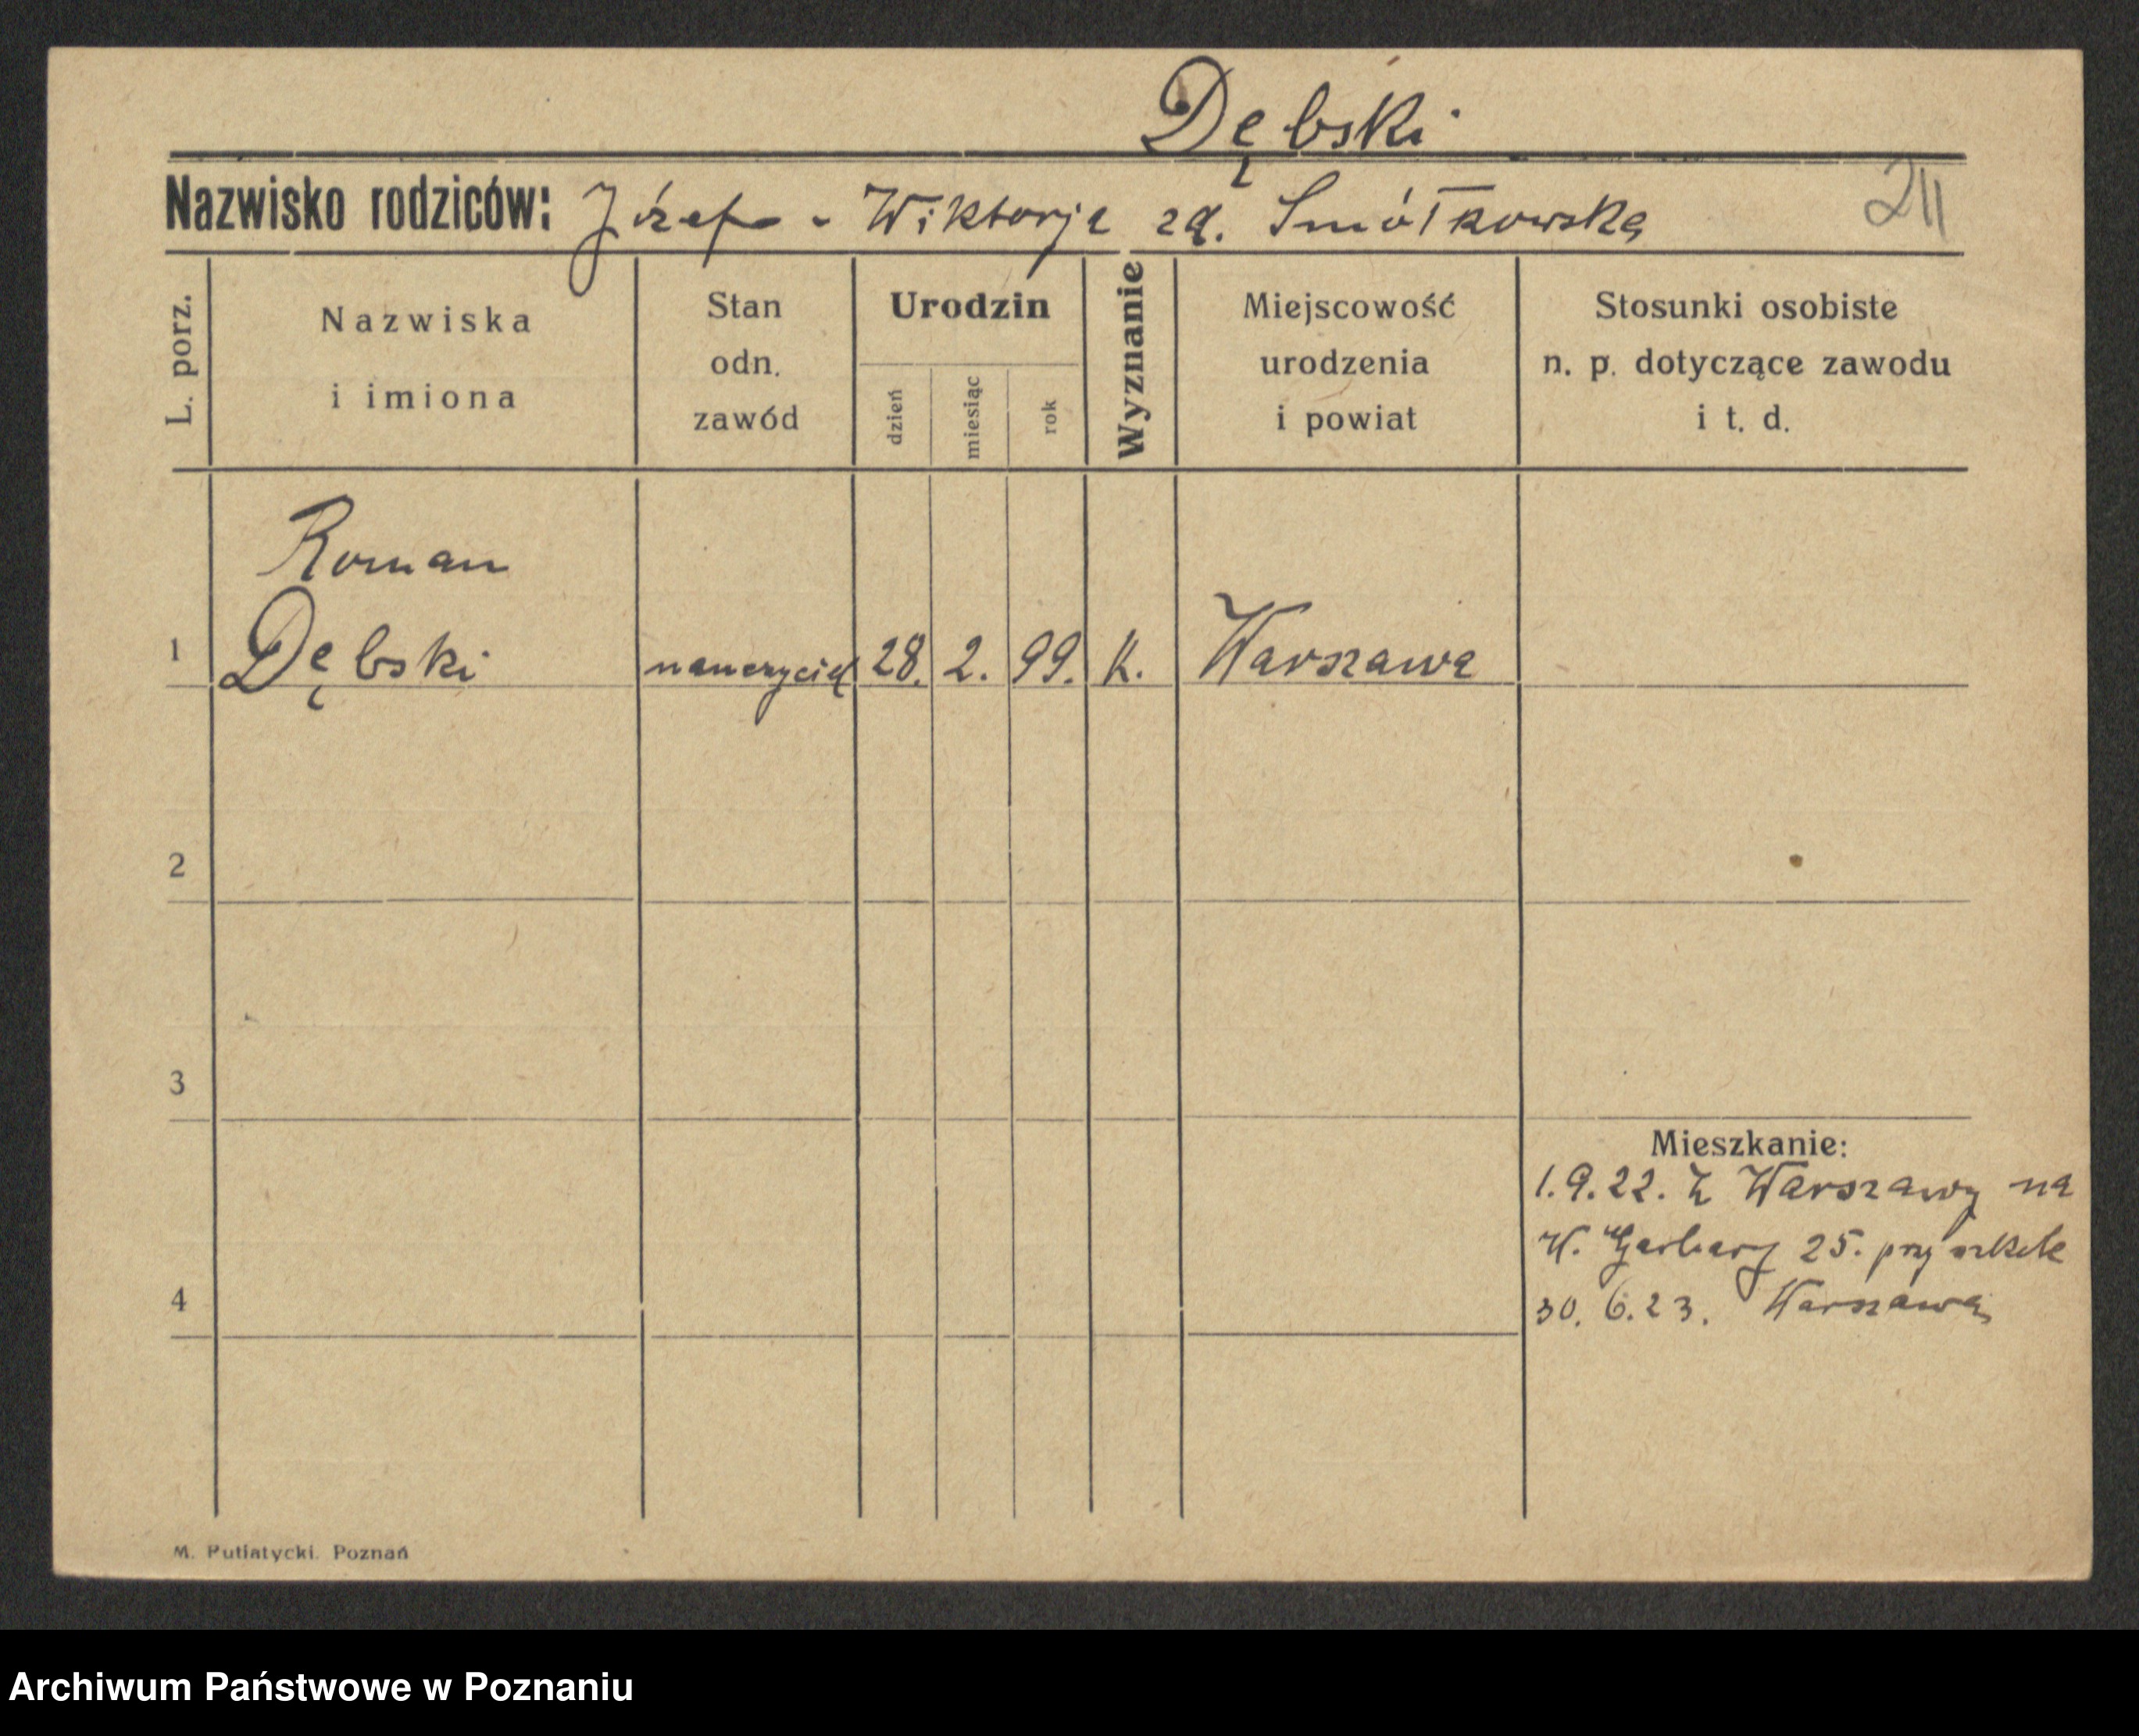 Dębski
Nazwisko rodziców: Józef - Wiktorja zd. Smółkowska
L. porz.
Nazwiska
i imiona
Stan
odn.
zawód
Urodzin
dzień
miesiąc
rok
Wyznanie
Miejscowość
urodzenia
i powiat
Stosunki osobiste
n. p. dotyczące zawodu
i t. d.
Roman
1 Dębski nauczyciel 28. 2. 99. K. Warszawa
2
3
Mieszkanie:
1.9.22. z Warszawy na
W. Garbary 25. przy
4
30. 6.23. Warszawa
M. Putiatycki. Poznań
Archiwum Państwowe w Poznaniu